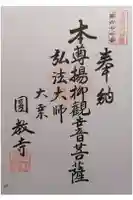 奉納
本尊楊柳観世音菩薩
弘法大師
大乗
圓教寺